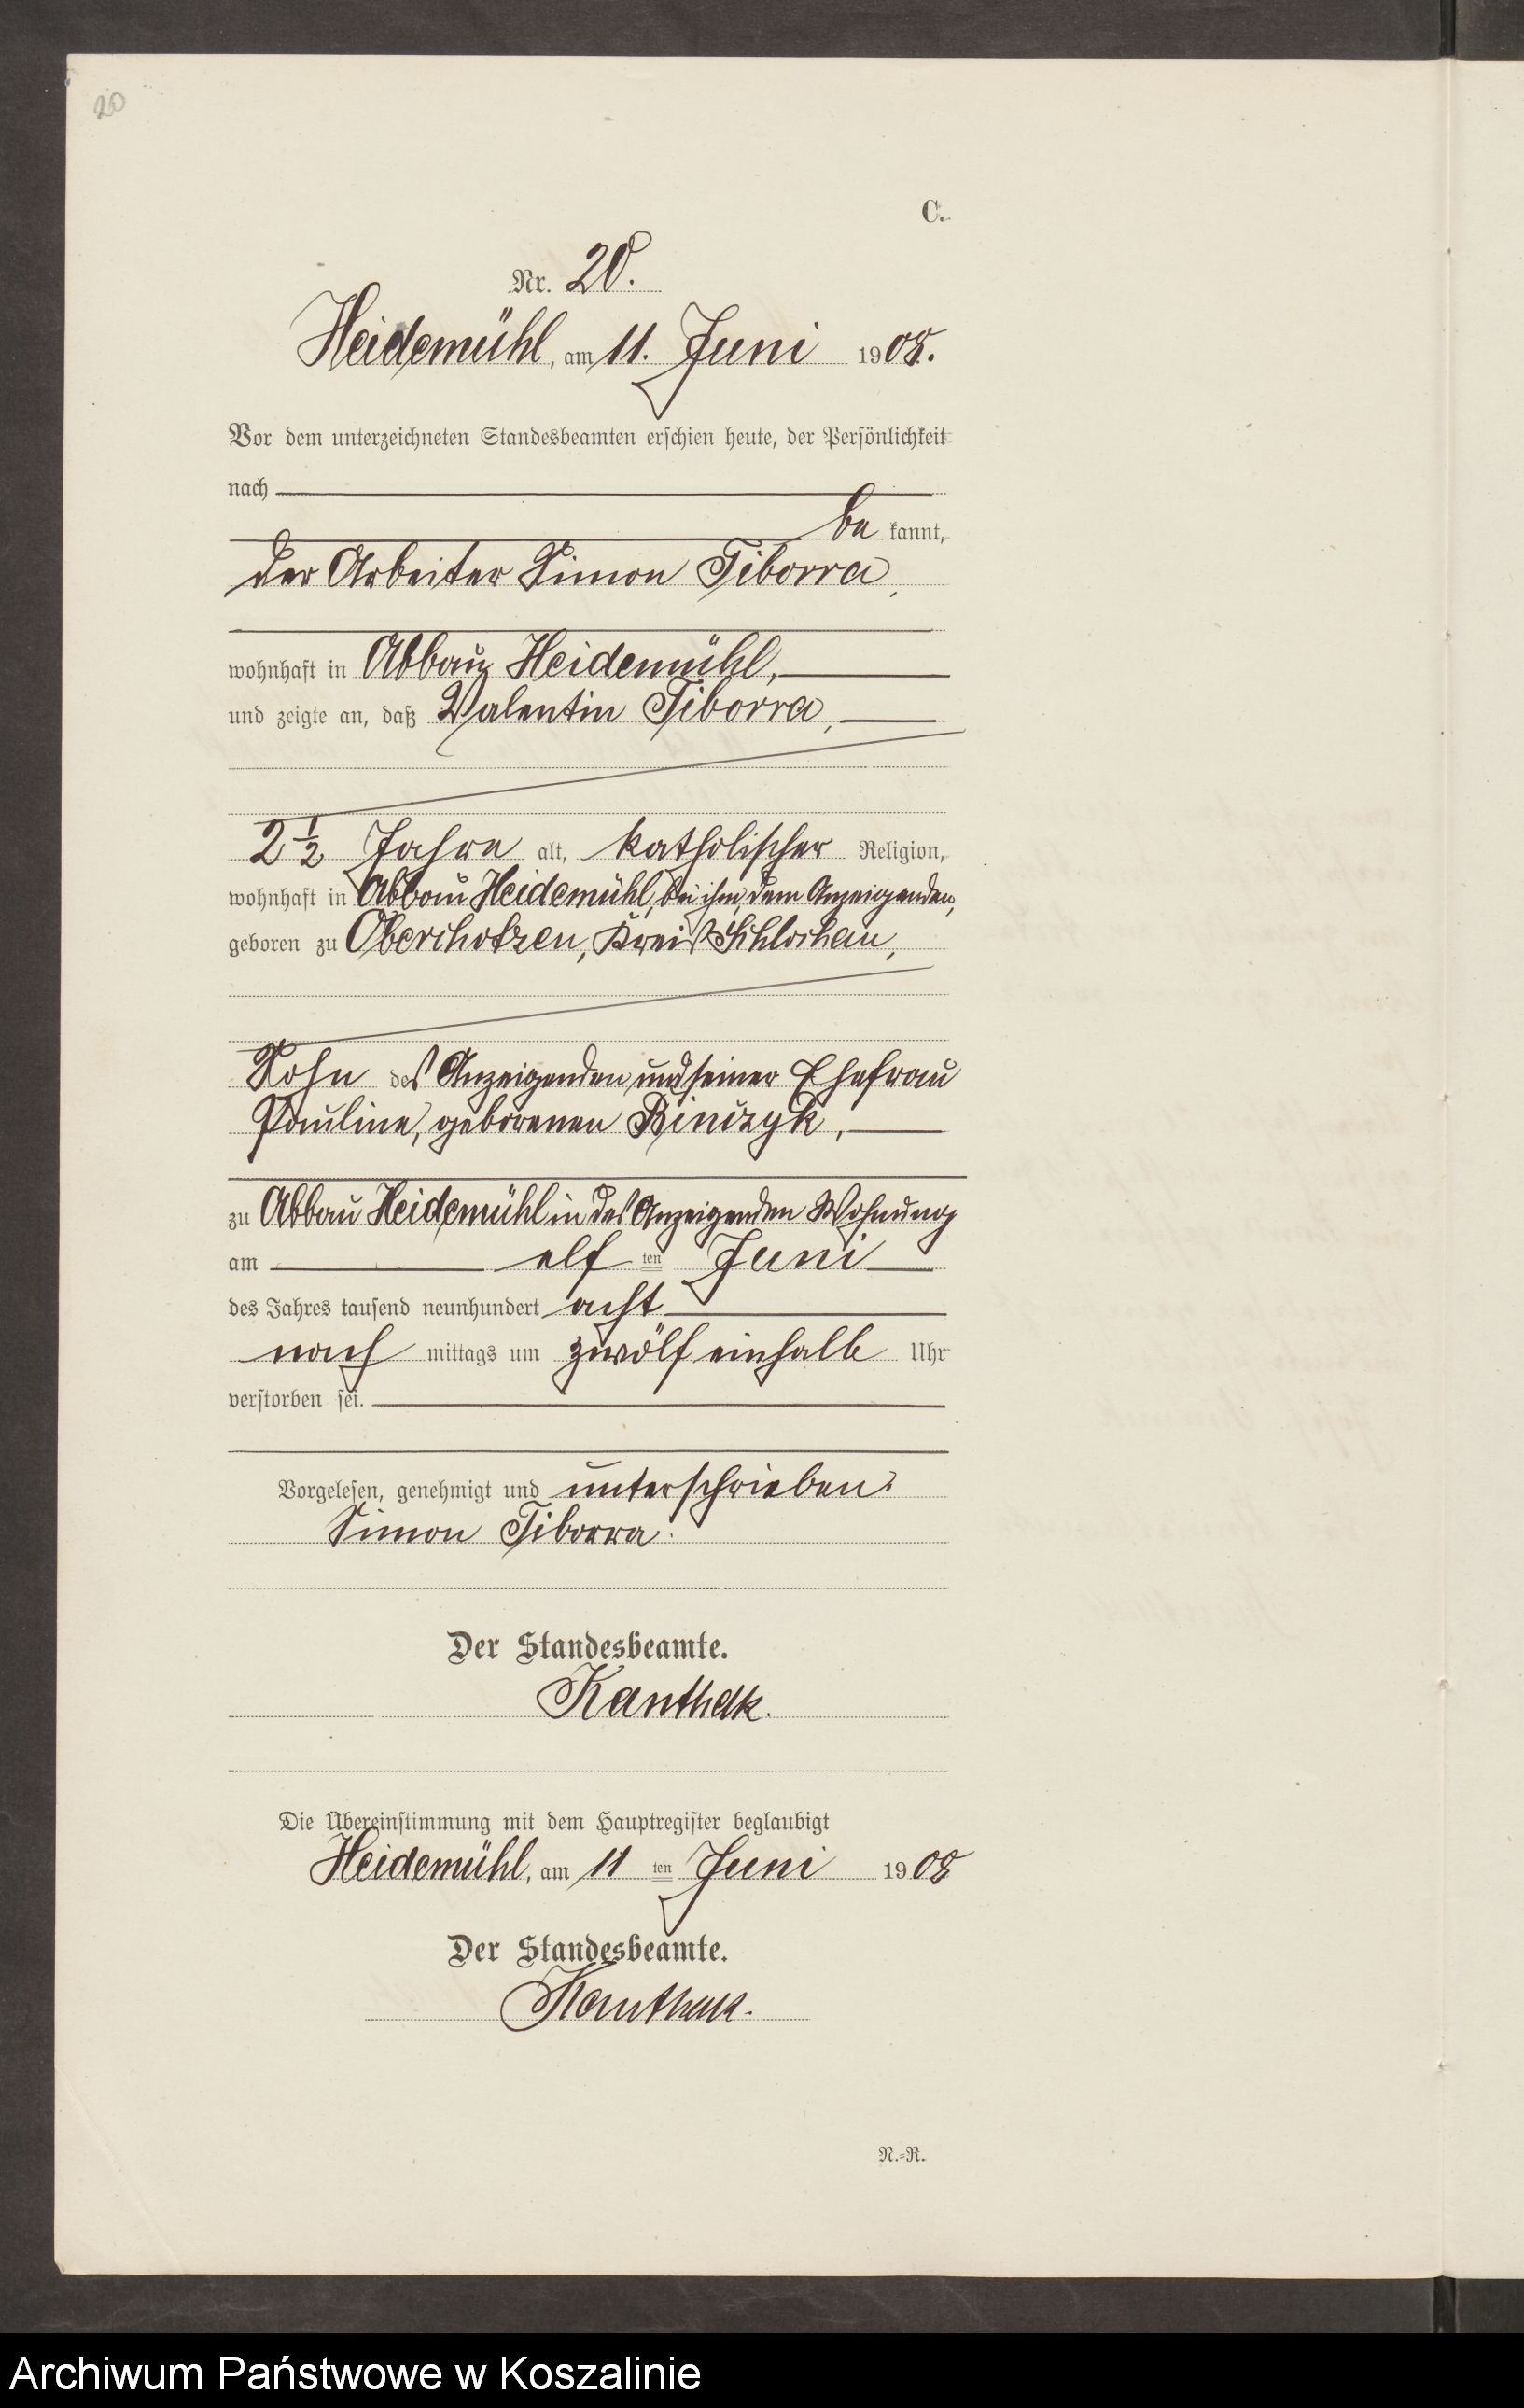 20
C.
Nr. 20.
Heidemühl, am 11. Juni 1908.
Vor dem unterzeichneten Standesbeamten erschien heute, der Persönlichkeit
nach
be kannt,
der Arbeiter Simon Tiborra,
wohnhaft in Abbau Heidemühl,
und zeigte an, daß Valentin Tiborra,
2 1/2 Jahre alt, katholischer Religion,
wohnhaft in Abbau Heidemühl, bei ihm, dem Anzeigenden,
geboren zu Oberchotzen, Kreis Schlochau,
Sohn des Anzeigenden und seiner Ehefrau
Pauline, geborenen Binczyk,
zu Abbau Heidemühl in des Anzeigenden Wohnung
am elf ten Juni
des Jahres tausend neunhundert acht
nach mittags um zwölf einhalb Uhr
verstorben sei.
Vorgelesen, genehmigt und unterschrieben:
Simon Tiborra.
Der Standesbeamte.
Kanthak.
Die Übereinstimmung mit dem Hauptregister beglaubigt
Heidemühl, am 11 ten Juni 1908
Der Standesbeamte.
Kanthak.
N.=R.
Archiwum Państwowe w Koszalinie